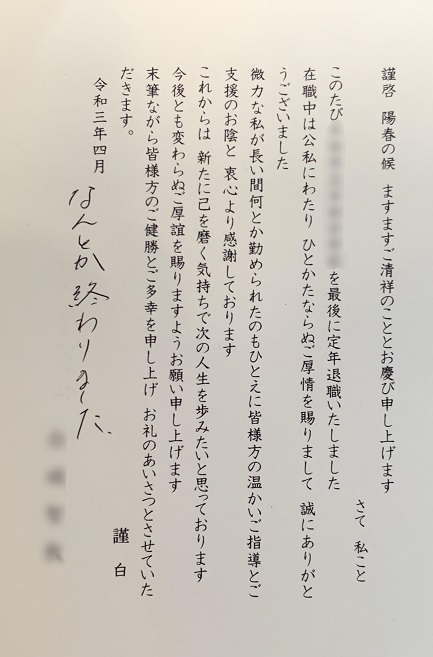 謹啓 陽春の候 ますますご清祥のこととお慶び申し上げます
さて 私こと
このたび を最後に定年退職いたしました
在職中は公私にわたり ひとかたならぬご厚情を賜りまして 誠にありがと
うございました
微力な私が長い間何とか勤められたのもひとえに皆様方の温かいご指導とご
支援のお陰と 衷心より感謝しております
これからは 新たに己を磨く気持ちで次の人生を歩みたいと思っております
今後とも変わらぬご厚誼を賜りますようお願い申し上げます
末筆ながら皆様方のご健勝とご多幸を申し上げ お礼のあいさつとさせていた
だきます。
謹白
令和三年四月
なんとか終わりました